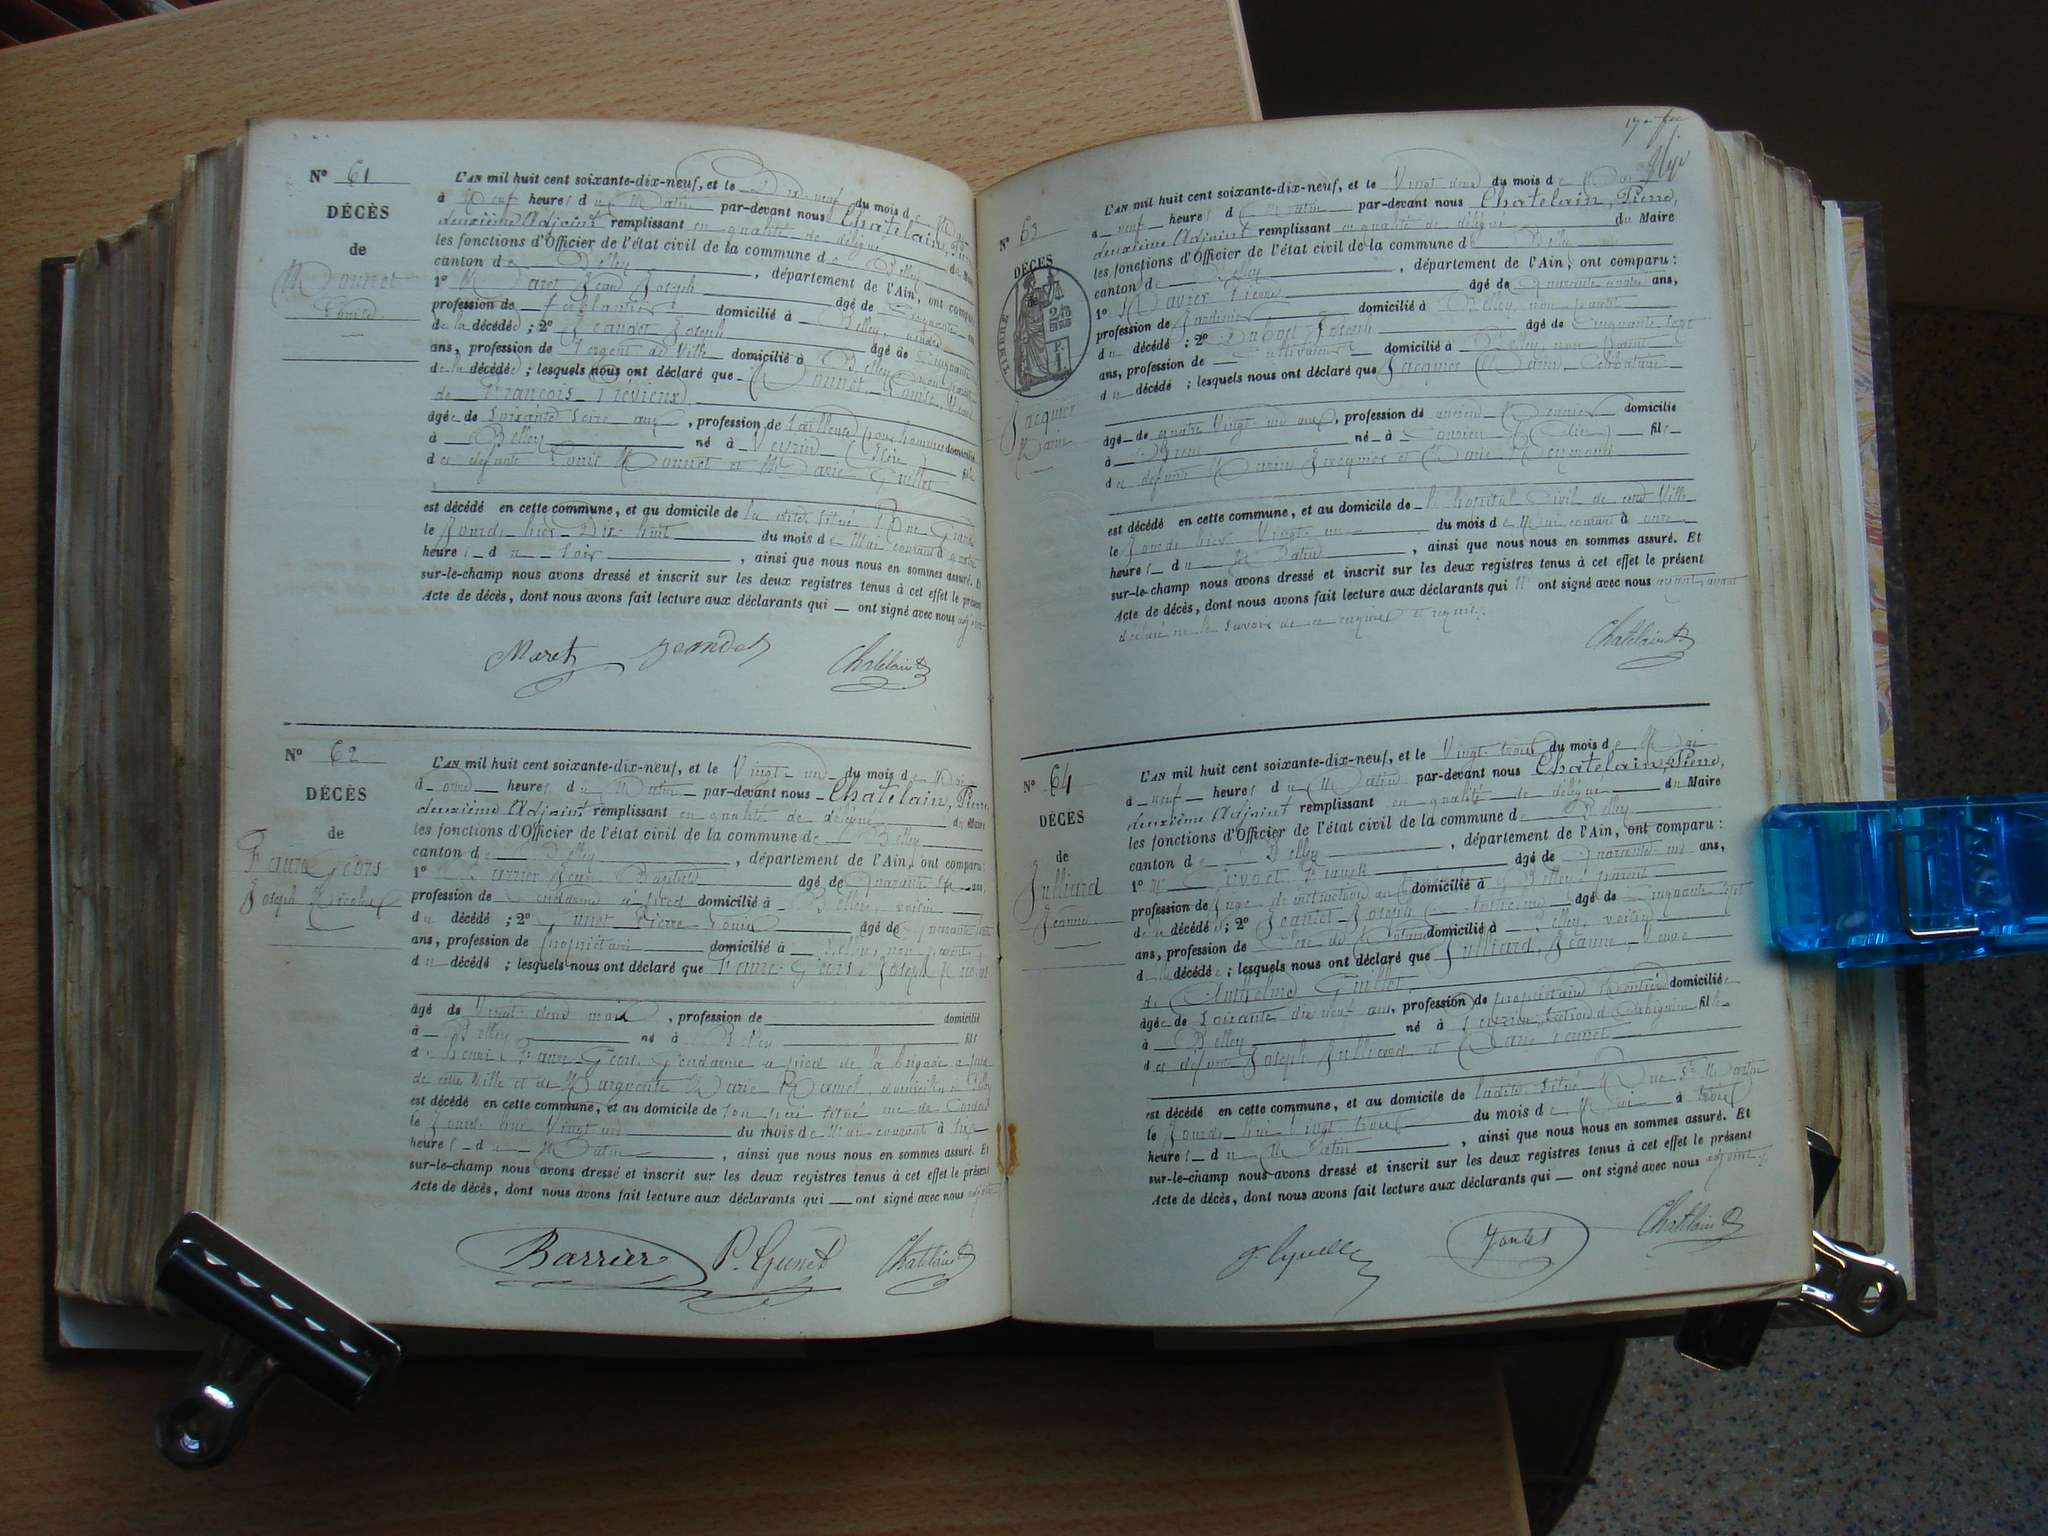 N° 61
DÉCÈS
de
Monnet
Louise
L'AN mil huit cent soixante-dix-neuf, et le Dix-neuf du mois de Mai
à Neuf heures du Matin par-devant nous Chatelain, Pierre
deuxième Adjoint remplissant en qualité de délégué du Maire
les fonctions d'Officier de l'état civil de la commune de Belley
canton de Belley, département de l'Ain, ont comparu
1° Maret Jean Joseph âgé de Cinquante
profession de ferblantier domicilié à Belley,
de la décédée ; 2° Jeandet Joseph âgé de Cinquante
ans, profession de Sergent de Ville domicilié à Belley non parent
de la décédée ; lesquels nous ont déclaré que Monnet, Louise, Veuve
de François
âgée de Soixante Seize ans, profession de tailleuse pour hommes domiciliée
à Belley née à Veyrin (Isère) fille
des défunts Louis Monnet et Marie Guillet
est décédé en cette commune, et au domicile de la dite, situé Rue Grande
le Jourd'hier Dix-huit du mois de Mai courant à quatre
heures du soir, ainsi que nous nous en sommes assuré. Et
sur-le-champ nous avons dressé et inscrit sur les deux registres tenus à cet effet le présent
Acte de décès, dont nous avons fait lecture aux déclarants qui ont signé avec nous adjoint
Maret Jeandet Chatelain
N° 62
DÉCÈS
de
Faure Geors
Joseph Nicolas
L'AN mil huit cent soixante-dix-neuf, et le Vingt-un du mois de Mai
à onze heures du Matin par-devant nous Chatelain, Pierre
deuxième Adjoint remplissant en qualité de délégué du Maire
les fonctions d'Officier de l'état civil de la commune de Belley
canton de Belley, département de l'Ain, ont comparu :
1° Barrier Jean Baptiste âgé de Quarante ans,
profession de Gendarme à pied domicilié à Belley, voisin
du décédé ; 2° Gunet Pierre Louis âgé de
ans, profession de propriétaire domicilié à Belley, non parent
du décédé ; lesquels nous ont déclaré que Faure-Geors Joseph Nicolas
âgé de Vingt-deux mois, profession de domicilié
à Belley né à Belley fils
de Henri Faure-Geors, Gendarme à pied de la brigade à pied
de cette Ville et de Marguerite Marie Ramel, domiciliés à Belley
est décédé en cette commune, et au domicile de son père situé rue de
le Jourd'hui Vingt-un du mois de Mai courant à six
heures du Matin, ainsi que nous nous en sommes assuré. Et
sur-le-champ nous avons dressé et inscrit sur les deux registres tenus à cet effet le présent
Acte de décès, dont nous avons fait lecture aux déclarants qui ont signé avec nous adjoint
Barrier P. Gunet Chatelain
N° 63
DÉCÈS
de
TIMBRE
Jacquier
Marin
L'AN mil huit cent soixante-dix-neuf, et le Vingt deux du mois de Mai
à neuf heures du Matin par-devant nous Chatelain, Pierre,
deuxième Adjoint remplissant en qualité de délégué du Maire
les fonctions d'Officier de l'état civil de la commune de Belley
canton de Belley, département de l'Ain, ont comparu :
1° Pierre âgé de Quarante ans,
profession de Jardinier domicilié à Belley, non parent
du décédé ; 2° Joseph âgé de Cinquante sept
ans, profession de Cultivateur domicilié à Belley, non parent
du décédé ; lesquels nous ont déclaré que Jacquier Marin, Célibataire
âgé de quatre Vingt un ans, profession de ancien Meunier domicilié
à né à fils
des défunts Marin Jacquier et Marie
est décédé en cette commune, et au domicile de l'hopital Civil de cette Ville
le Jourd'hier Vingt-un du mois de Mai courant à onze
heures du Matin, ainsi que nous nous en sommes assuré. Et
sur-le-champ nous avons dressé et inscrit sur les deux registres tenus à cet effet le présent
Acte de décès, dont nous avons fait lecture aux déclarants qui n'ont signé avec nous adjoint, ayant
déclaré ne le savoir de ce enquis et requis.
Chatelain
N° 64
DÉCÈS
de
Julliard
Jeanne
L'AN mil huit cent soixante-dix-neuf, et le Vingt-trois du mois de Mai
à neuf heures du Matin par-devant nous Chatelain, Pierre,
deuxième Adjoint remplissant en qualité de délégué du Maire
les fonctions d'Officier de l'état civil de la commune de Belley
canton de Belley, département de l'Ain, ont comparu :
1° âgé de Quarante-un ans,
profession de Juge d'instruction domicilié à Belley, parent
de la décédée ; 2° Joseph Anthelme âgé de Cinquante sept
ans, profession de Clerc de Notaire domicilié à Belley, voisin
de la décédée ; lesquels nous ont déclaré que Julliard, Jeanne, Veuve
de Anthelme Guillot
âgée de Soixante dix neuf ans, profession de propriétaire Rentière domiciliée
à Belley née à fille
des défunts Joseph Julliard et Marie
est décédé en cette commune, et au domicile de ladite, situé Rue St Martin
le Jourd'hui Vingt-trois du mois de Mai à trois
heures du Matin, ainsi que nous nous en sommes assuré. Et
sur-le-champ nous avons dressé et inscrit sur les deux registres tenus à cet effet le présent
Acte de décès, dont nous avons fait lecture aux déclarants qui ont signé avec nous adjoint
Chatelain